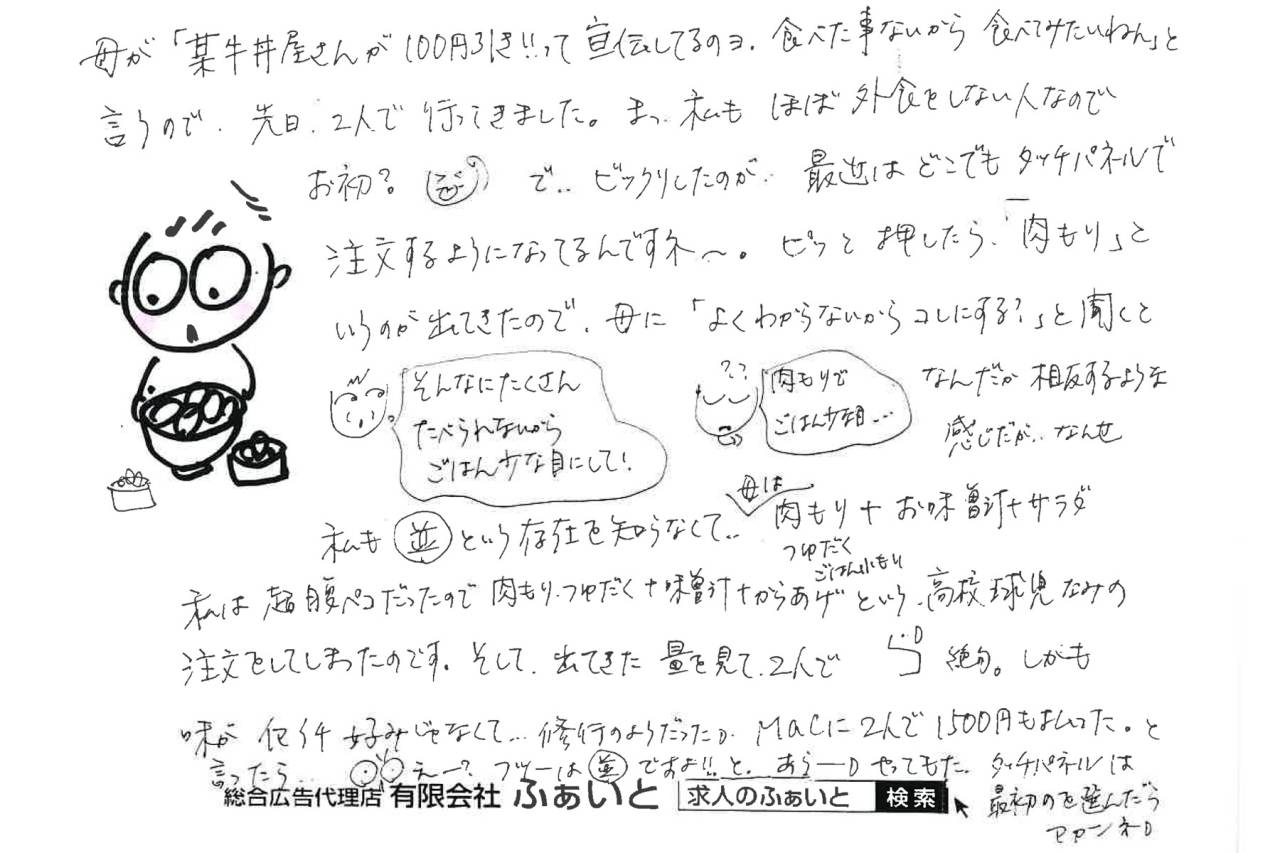 母が「某牛丼屋さんが100円引き!!って宣伝してるのヨ、食べた事ないから 食べてみたいねん」と
言うので、先日、2人で 行ってきました。まっ、私も ほぼ 外食をしない人なので
お初? で.. ビックリしたのが、最近は どこでも タッチパネルで
注文するようになってるんですネ〜。ピッと 押したら、「肉もり」と
いうのが 出てきたので、母に 「よくわからないから コレにする?」と 聞くと
そんなにたくさん
たべられないから
ごはん少な目にして!
??
肉もりで
ごはん少な目…
なんだか 相反するような
感じだが.. なんせ
私も 並 という 存在を 知らなくて..
母は
肉もり + お味噌汁+サラダ
つゆだく
ごはん小もり
私は 超腹ペコだったので 肉もり、つゆだく+味噌汁+からあげ という、高校球児なみの
注文をしてしまったのです。そして、出てきた 量を見て、2人で 絶句。しかも
味が 好みじゃなくて… 修行のようだった MaCに 2人で 1500円もはらった。と
言ったら… えー? フツーは 並 ですよ!!と、あらー やってもた タッチパネルは
最初のを選んだら
アカンネ
総合広告代理店 有限会社 ふぁいと 求人のふぁいと 検索